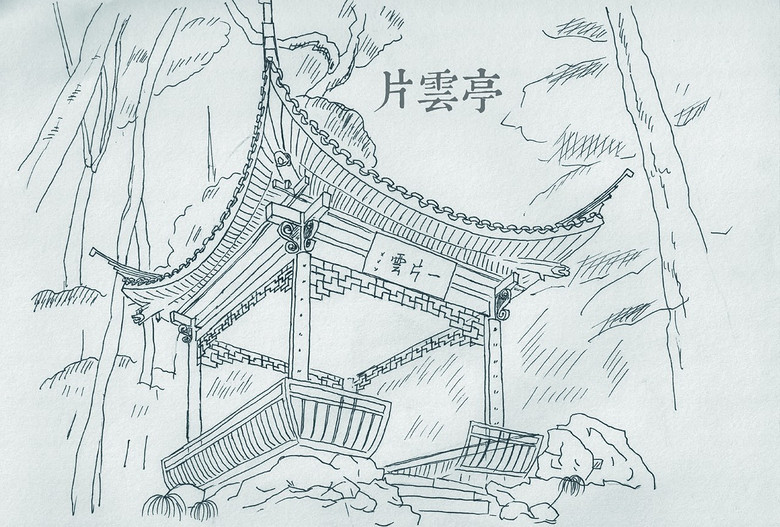 片雲亭
一片雲